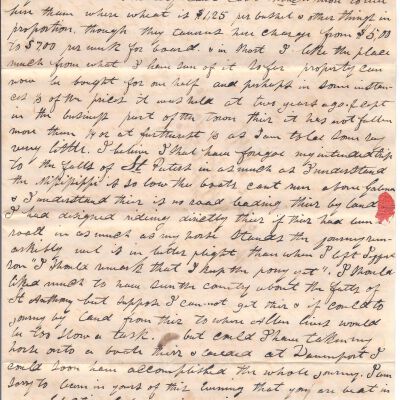 him them where wheat is $1,25 per bushel & other things in
proportion, though they caution here charge from $5,00
to $7,00 per week for board, & in short I like the place
much from what I have seen of it so far property can
now be bought for one half and perhaps in some instan-
ces ⅓ of the price it was held at two years ago. Except
in the business part of the town their it has not fallen
more than ¼ or at furthurst ⅓ as I am told some very
very little. I believe I shall have forgoe my intended trip
to the falls of St Peters in as much as I understand
the Mississippi is so low the boats cant run above Galena
& I understand thier is no road leading their by land
I had designed rideing directly thier if thier had been a
road in as much as my horse stands the journey rem-
arkably well is in better plight than when I left
"I should remark that I kept the pony yet". I should
liked much to have seen the country about the falls of
St Anthony but suppose I cannot get thier & if could to
journey by land from this to where Allen lives would
be too slow a task. but could I have taken my
horse onto a boat thier & landed at Davenport I
could soon have accomplished the whole journey. I am
sorry to learn in yours of this evening that you are beat in